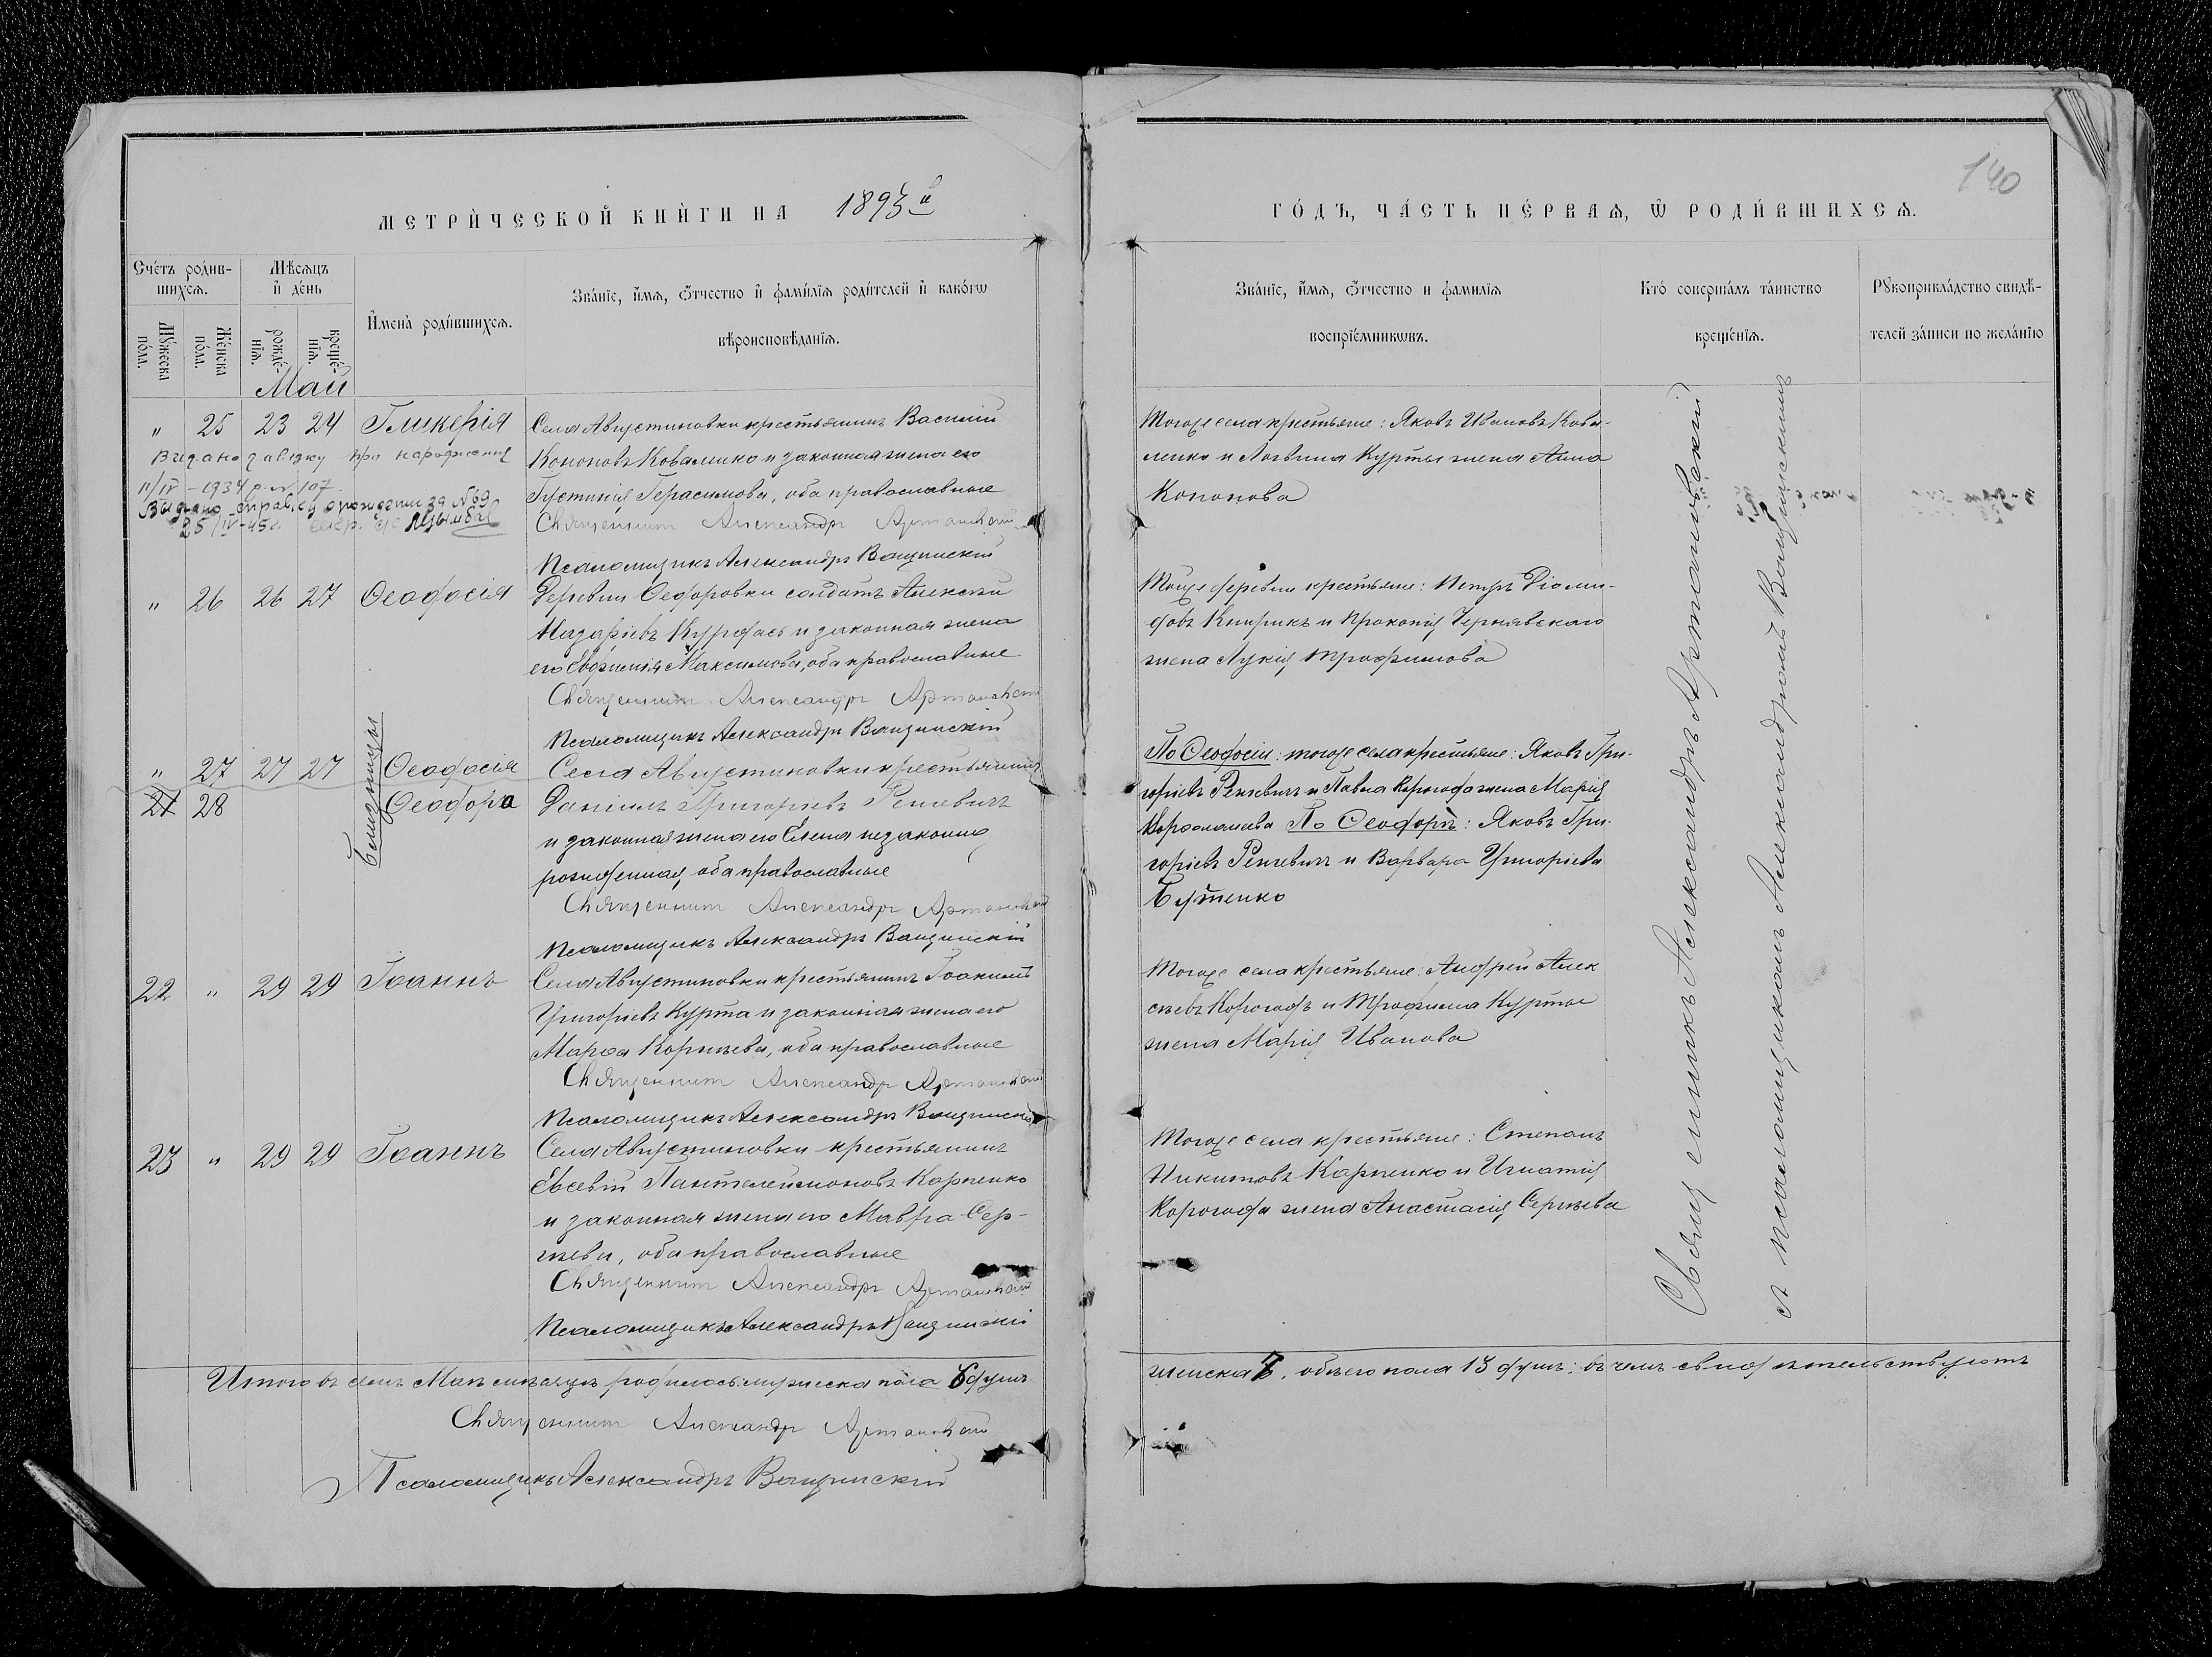 140
МЕТРИЧЕСКОЙ КНИГИ НА 1893й
Счетъ родившихся.
Мѣсяцъ и день
Мужеска пола.
Женска пола.
рожденія.
крещенія.
Имена родившихся.
Званіе, имя, отчество и фамилія родителей и какогѡ
вѣроисповѣданія.
Май
" 25 23 24 Гликерія Села Августиновки крестьянинъ Василій
Кононовъ Коваленко и законная жена его
Іустинія Герасимова, оба православные
Видано довідку про народження
11/IV - 1934 р. № 107
Выдано справку о рождении за № 69
25/IV-45г. секр. с/с
Священникъ Александръ Артановскій
Псаломщикъ Александръ Ващинскій
" 26 26 27 Ѳеодосія Деревни Ѳедоровки солдатъ Алексѣй
Назаріевъ Курдась и законная жена
его Евфимія Максимова, оба православные
Священникъ Александръ Артановскій
Псаломщикъ Александръ Ващинскій
Близницы
" 27 27 27 Ѳеодосія Села Августиновки крестьянинъ
21 28 Ѳеодора Даніилъ Григоріевъ Реневичъ
и законная жена его Елена незаконно
рожденная, оба православные
Священникъ Александръ Артановскій
Псаломщикъ Александръ Ващинскій
22 " 29 29 Іоаннъ Села Августиновки крестьянинъ Іоакимъ
Григоріевъ Курта и законная жена его
Марѳа Корнѣева, оба православные
Священникъ Александръ Артановскій
Псаломщикъ Александръ Ващинскій
23 " 29 29 Іоаннъ Села Августиновки крестьянинъ
Евсевій Пантелеимоновъ Карпенко
и законная жена его Мавра Сер-
гѣева, оба православные
Священникъ Александръ Артановскій
Псаломщикъ Александръ Ващинскій
Итого въ семъ Маѣ мѣсяцѣ родилось: мужеска пола 6 душъ
Священникъ Александръ Артановскій
Псаломщикъ Александръ Ващинскій
ГОДЪ, ЧАСТЬ ПЕРВАЯ, Ѡ РОДИВШИХСЯ.
Званіе, имя, отчество и фамилія
воспріемникѡвъ.
Кто совершалъ таинство
крещенія.
Рукоприкладство свидѣ-
телей записи по желанію
Тогоже села крестьяне: Яковъ Ивановъ Кова-
ленко и Логвина Курты жена Анна
Кононова
Тойже деревни крестьяне: Петръ Діоми-
довъ Кнырикъ и Прокопія Чернявскаго
жена Лукія Трофимова
По Ѳеодосіи: тогоже села крестьяне: Яковъ Гри-
горіевъ Реневичъ и Павла Корогода жена Марія
Варфоломеева По Ѳеодорѣ: Яковъ Гри-
горіевъ Реневичъ и Варвара Григоріева
Бутенко
Тогоже села крестьяне: Андрей Алек
сѣевъ Корогодъ и Трофима Курты
жена Марія Иванова
Тогоже села крестьяне: Степанъ
Никитовъ Карпенко и Игнатія
Корогода жена Анастасія Сергѣева
Священникъ Александръ Артановскій
съ псаломщикомъ Александромъ Ващинскимъ
женска 7, обоего пола 13 душъ; въ чемъ свидѣтельствуютъ